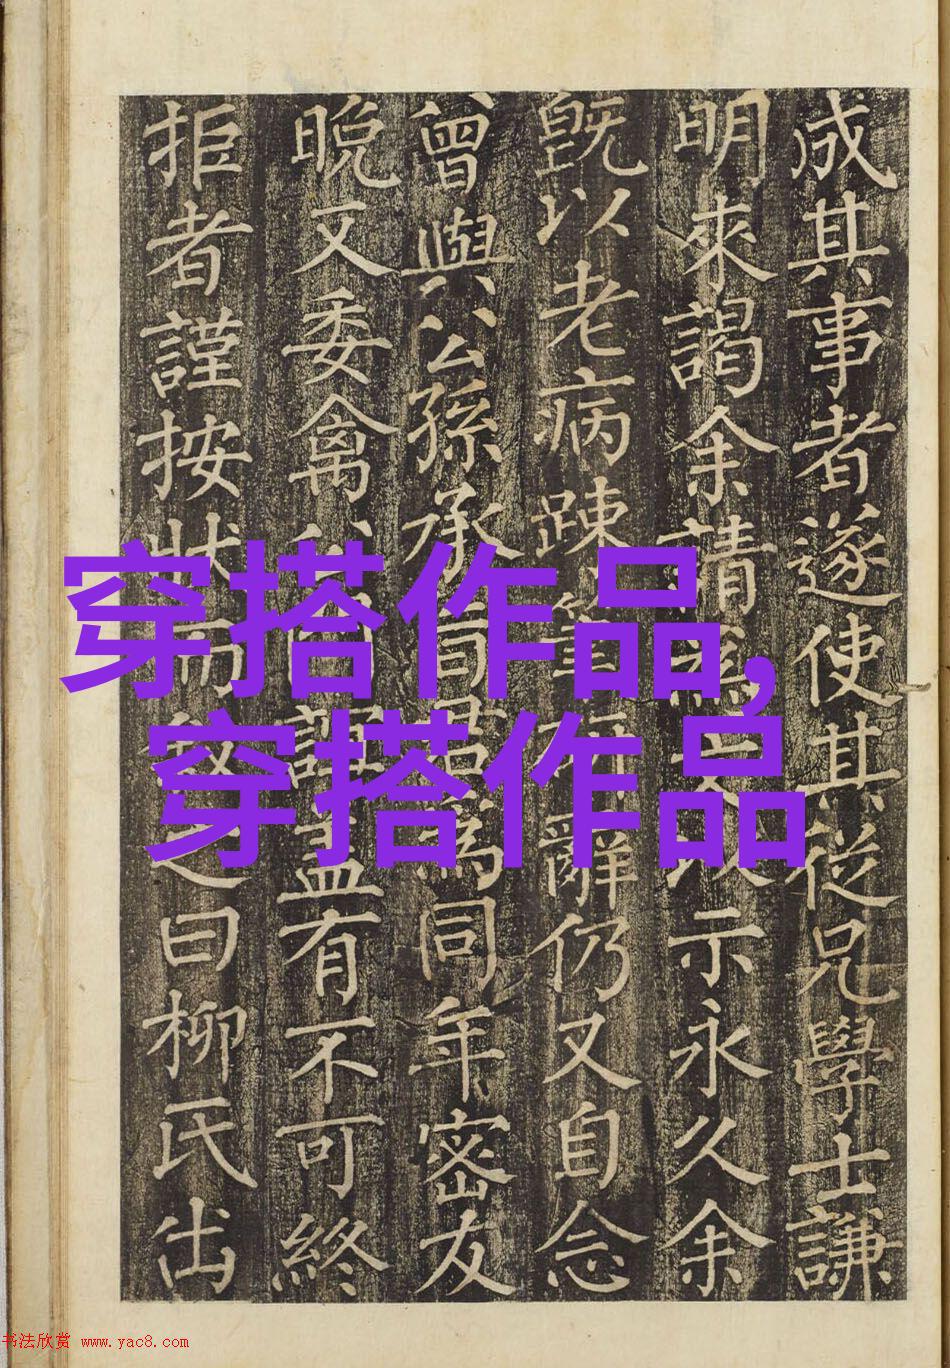 成其事者遂使其從兄學士謙
明來謁余請為文以示永久余
旣以老病踈辭仍又自念
曾與公孫承旨君為同年密友
晚又委禽有不可終
拒者謹按狀而叙之曰柳氏出
穿搭作品,
穿搭作品
书法欣赏 www.yac8.com